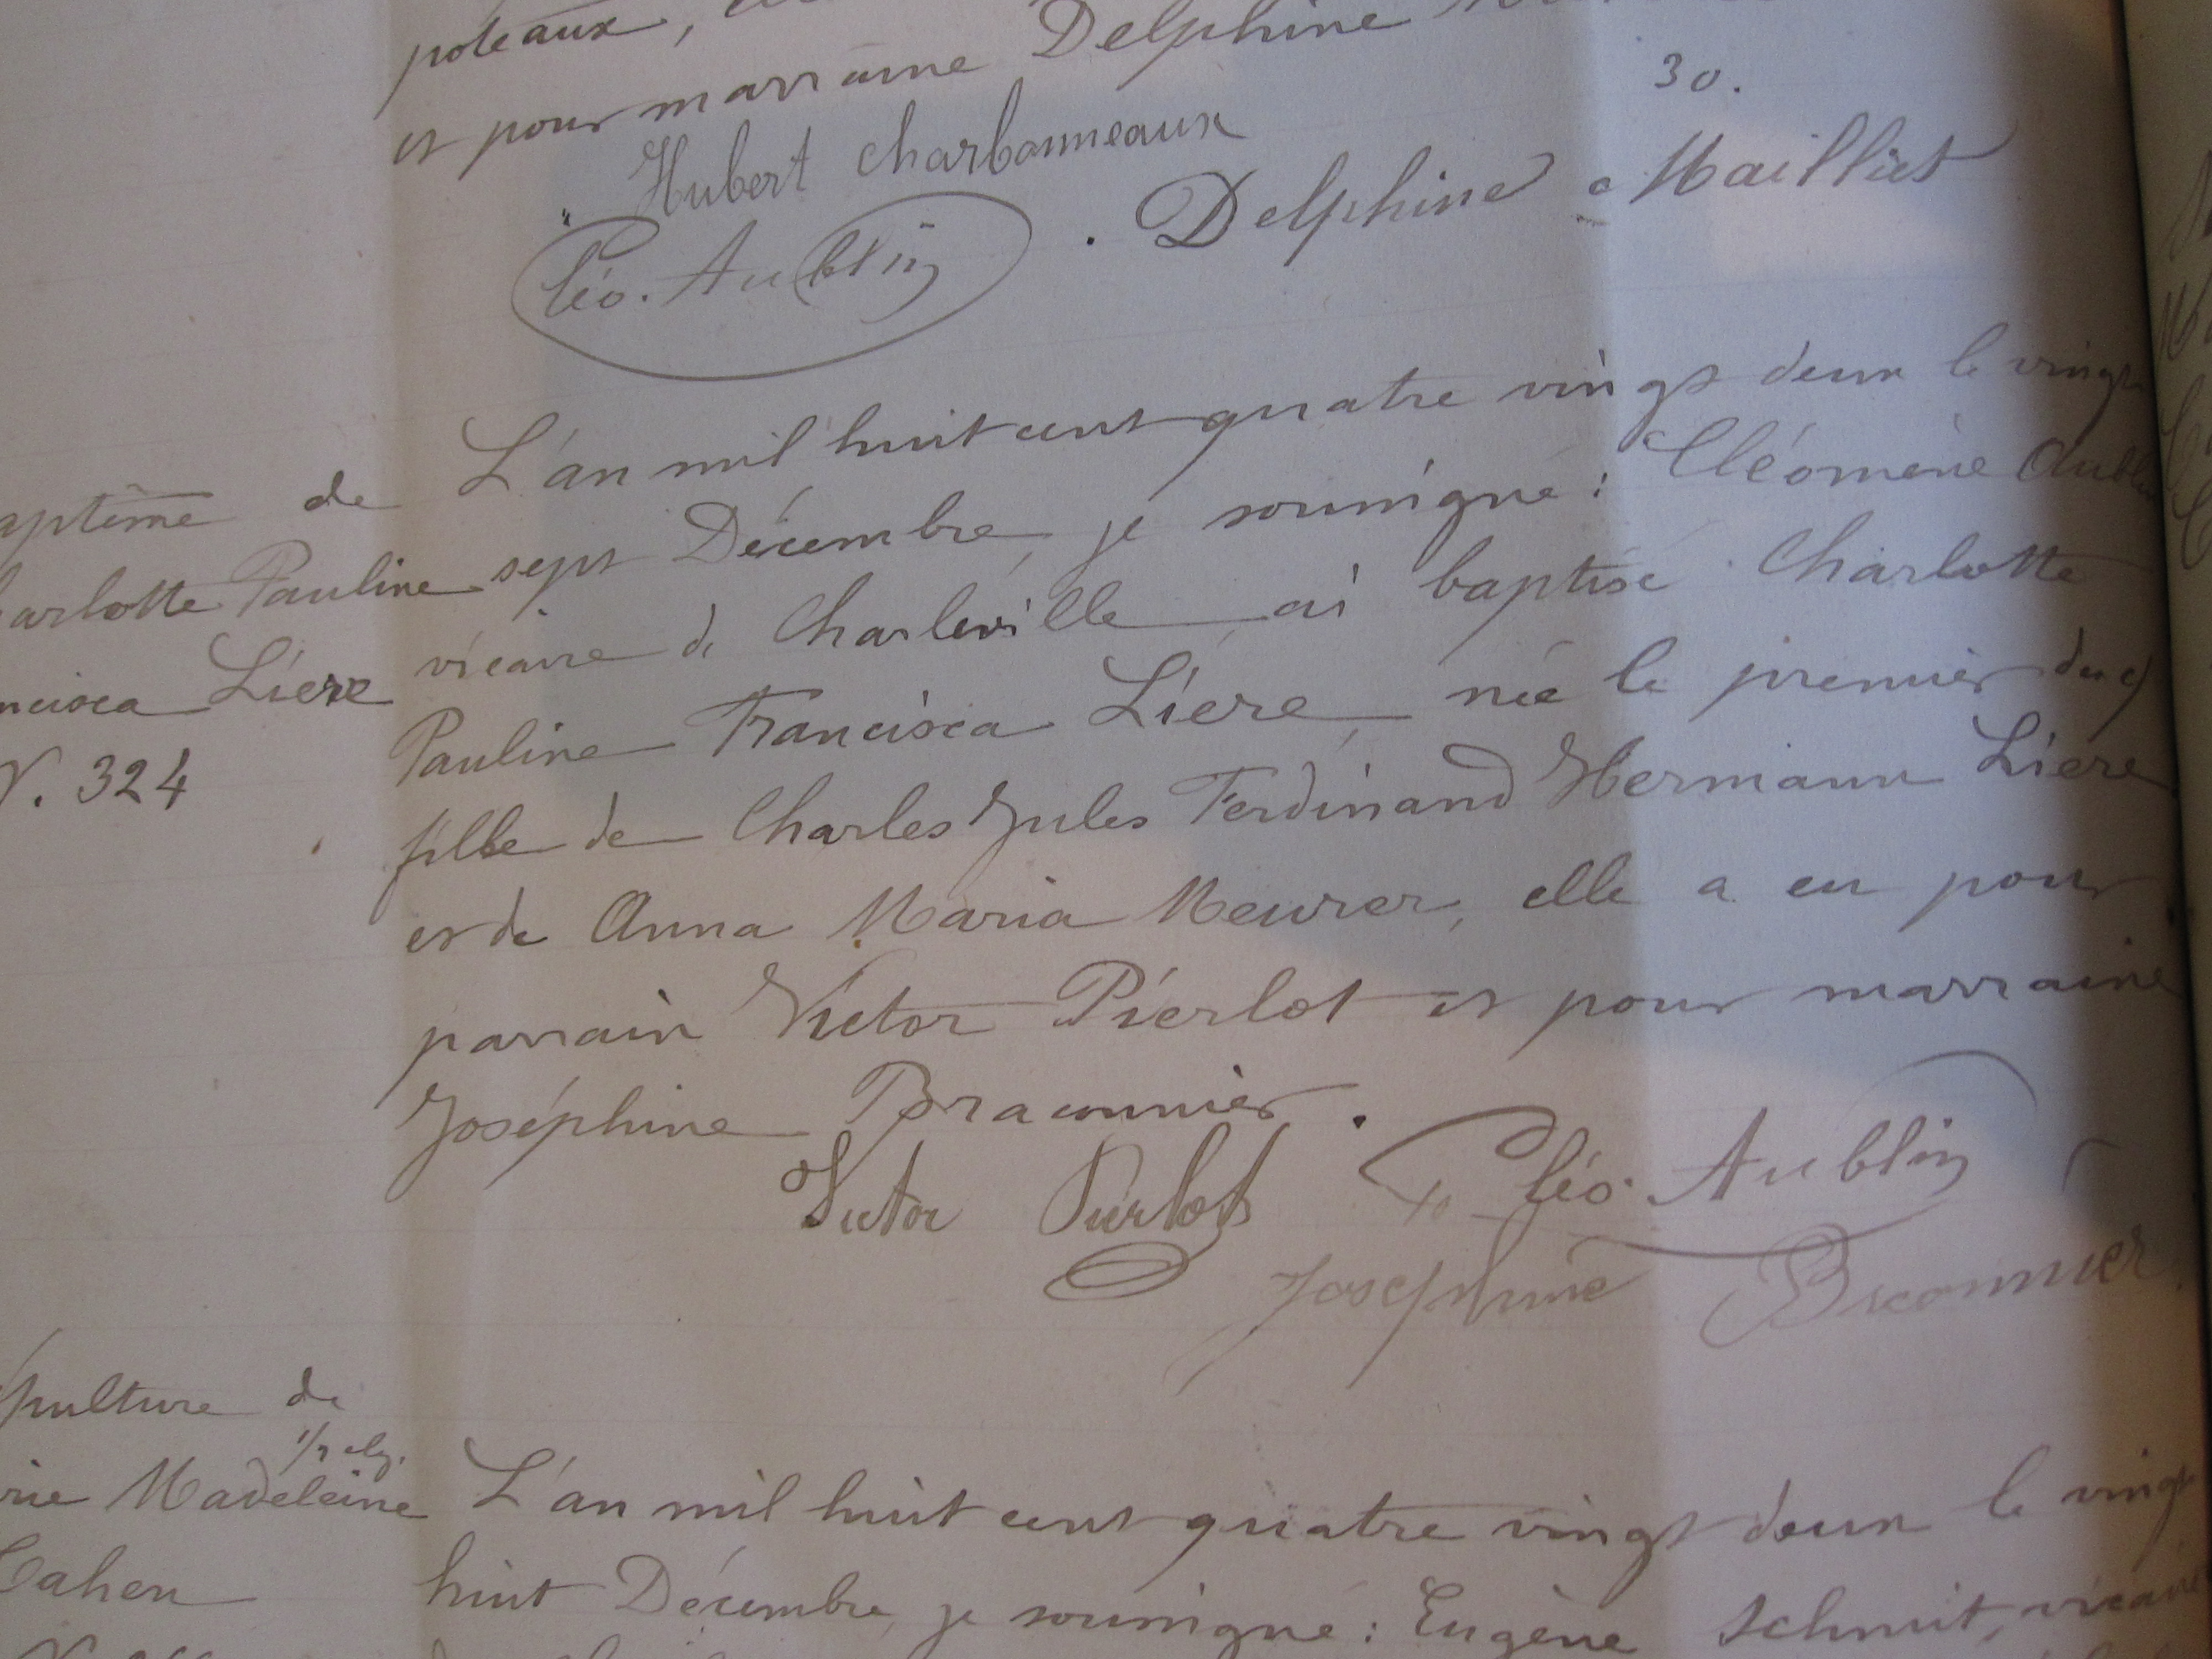 poteaux,
et pour marraine Delphine
30.
Hubert Charbonneaux
Cléo. Aublin . Delphine Mailliet
aptême de
arlotte Pauline
ncisca Liere
N. 324
L'an mil huit cent quatre vingt deux le vingt
sept Décembre, je soussigné : Cléomène Aublin
vicaire de Charleville ai baptisé Charlotte
Pauline Francisca Liere, née le premier du c)
fille de Charles Jules Ferdinand Hermann Liere
et de Anna Maria Meurer, elle a eu pour
parrain Victor Pierlot et pour marraine
Joséphine Braconnier.
Victor Pierlot Cléo. Aublin
Josephine Braconnier
épulture de
rie Madeleine
Cahen
L'an mil huit cent quatre vingt deux le vingt
huit Décembre, je soussigné : Eugène Schmit, vicaire